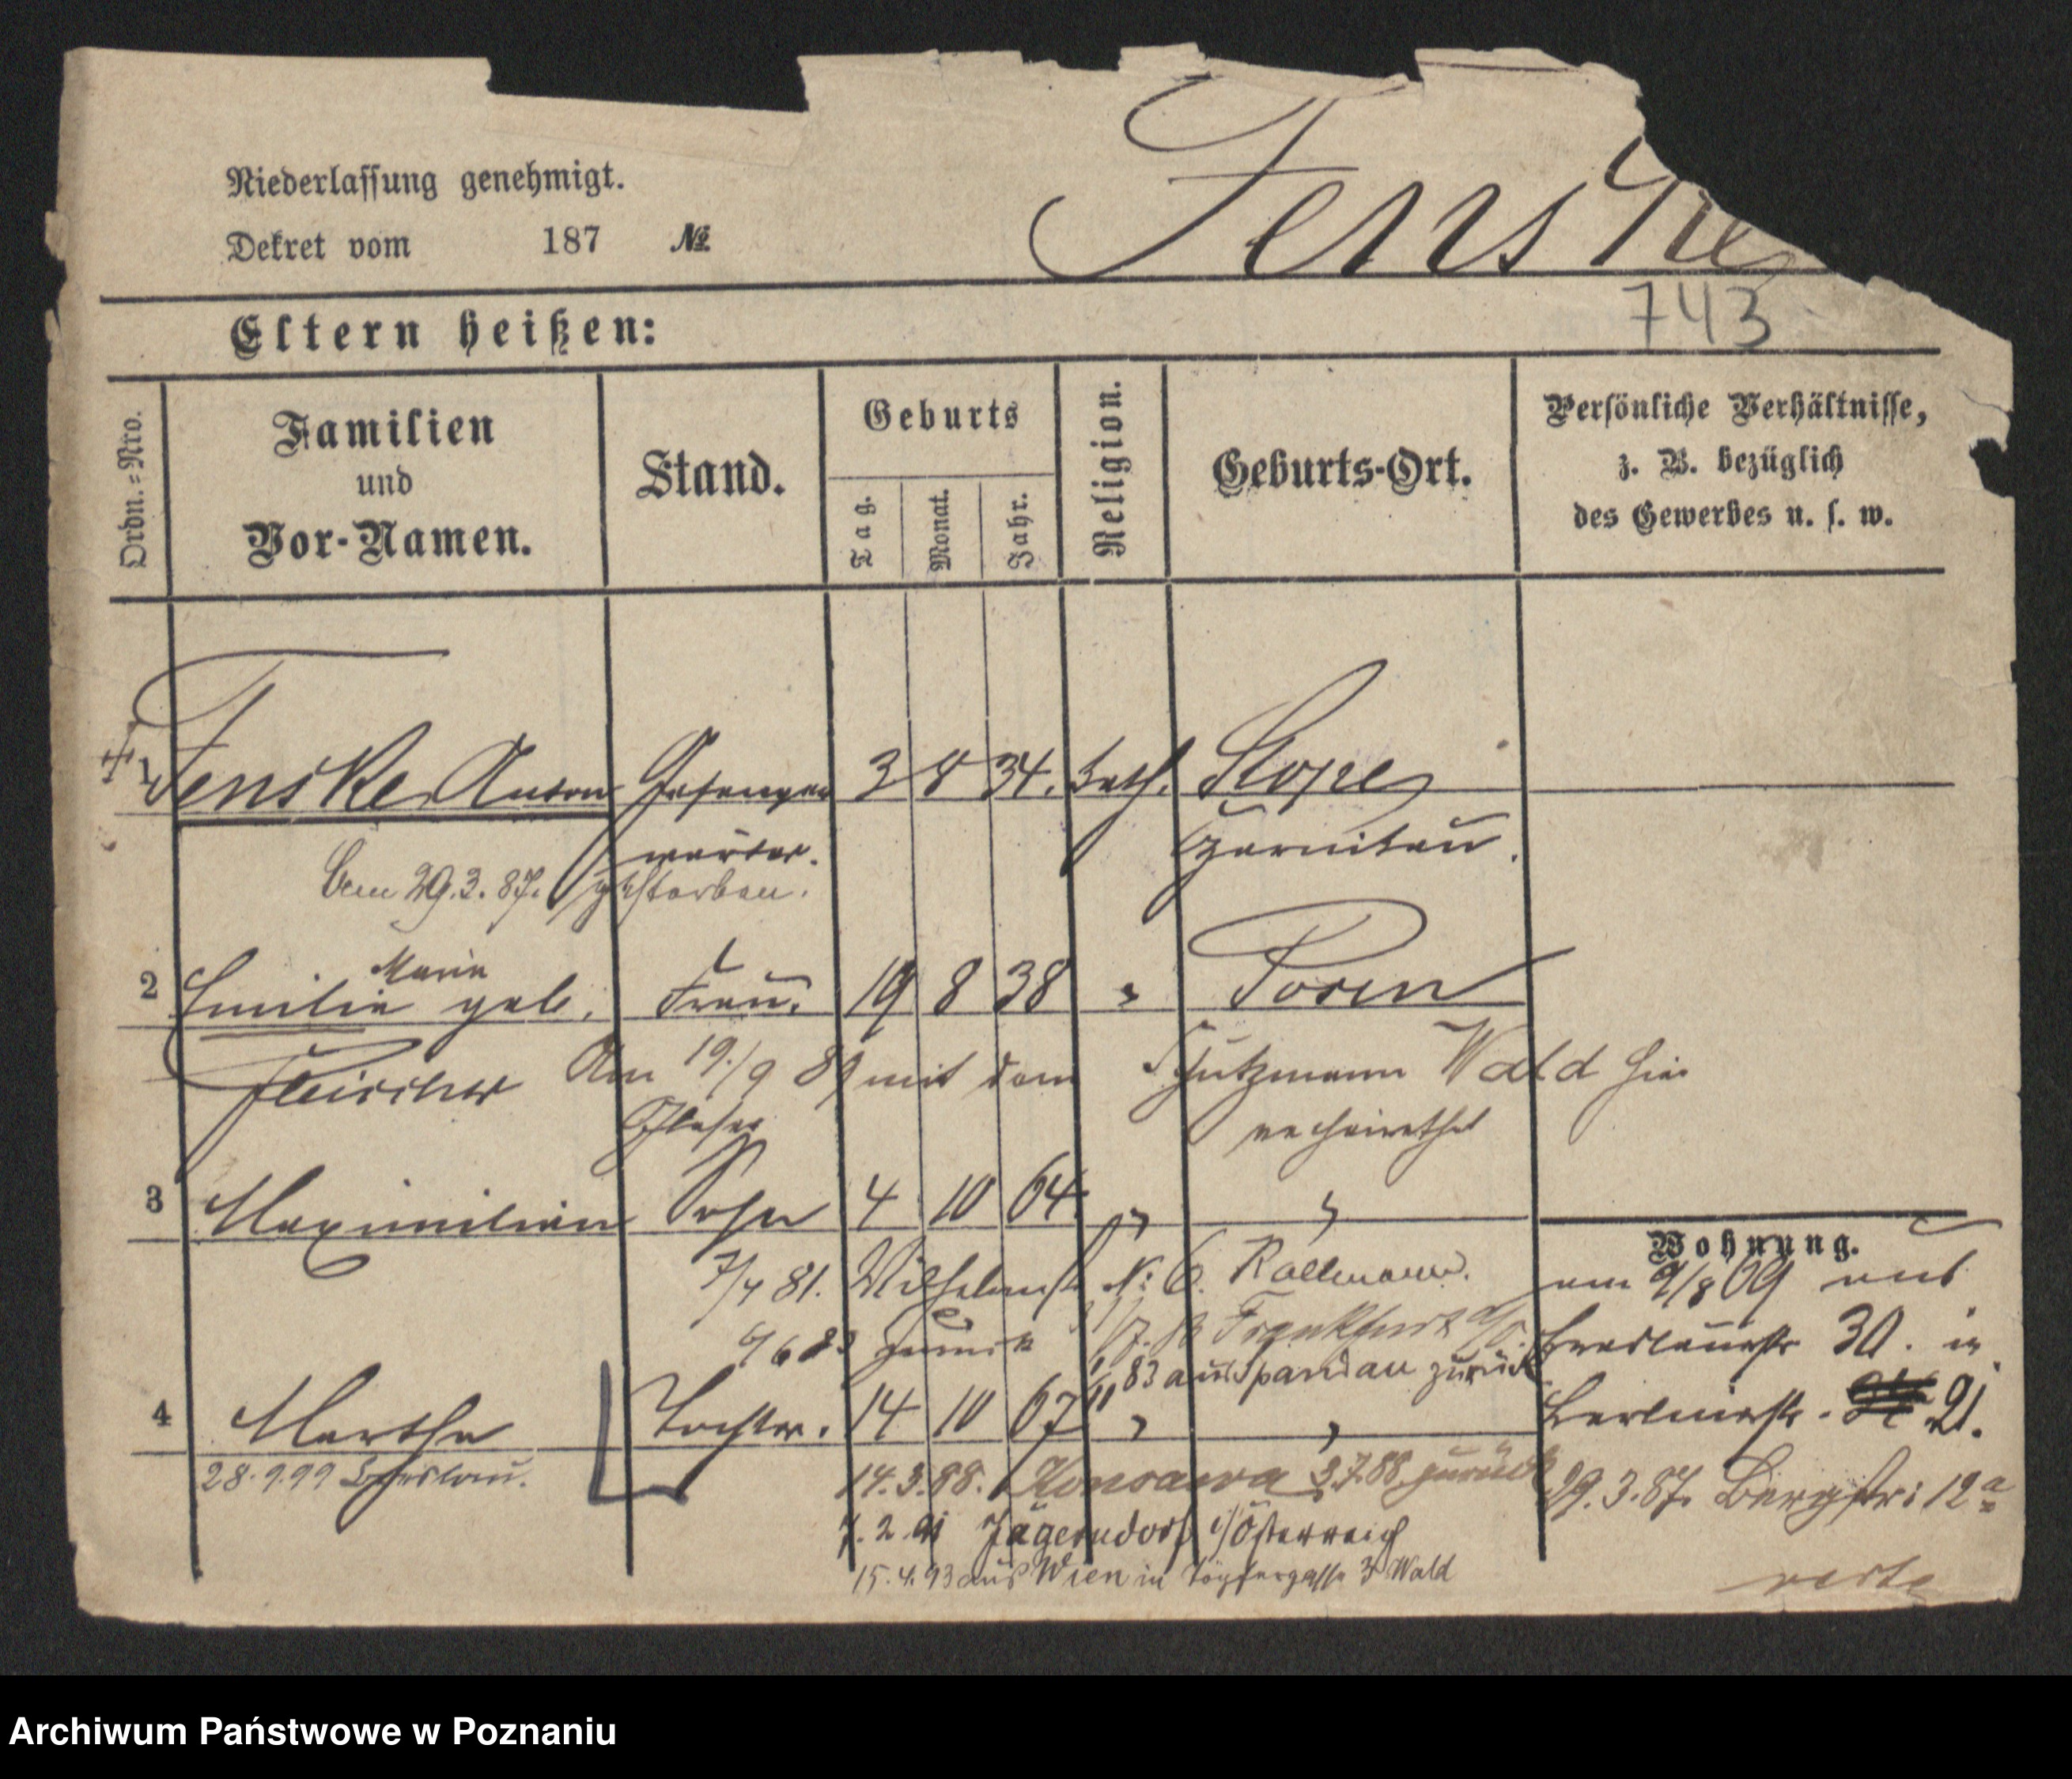 Niederlassung genehmigt.
Dekret vom 187 №
Fenske
743
Eltern heißen:
Ordn.=Nro.
Familien
und
Vor-Namen.
Stand.
Geburts
Tag.
Monat.
Jahr.
Religion.
Geburts-Ort.
Persönliche Verhältnisse,
z. B. bezüglich
des Gewerbes u. s. w.
1 Fenske Anton Gefangen 3 8 34. kath. Stope
wärter. Czarnikau.
am 29.3.87. gestorben.
Marie
2 Emilie geb. Frau. 19 8 38 " Posen
Fleischer Am 19./9 89 mit dem Schutzmann Wald hier
verheirathet
3 Maximilian Sohn 4 10 64. " "
7/4 81. Wilhelmst N: 6. Kallmann.
Wohnung.
am 9/8 69 aus
Frankfurt a/O.
Breslauerstr 30. in
83 aus Spandau zurück
4 Martha Tochter. 14 10 67 " "
Berlinerstr. 21.
28.9.99 Breslau.
14.3.88. 3.7.88 zurück
29.3.87. Bergstr: 12a
7.2.91 Jägerndorf i/Österreich
15.4.93 aus Wien in Töpfergasse 3 Wald
verte
Archiwum Państwowe w Poznaniu